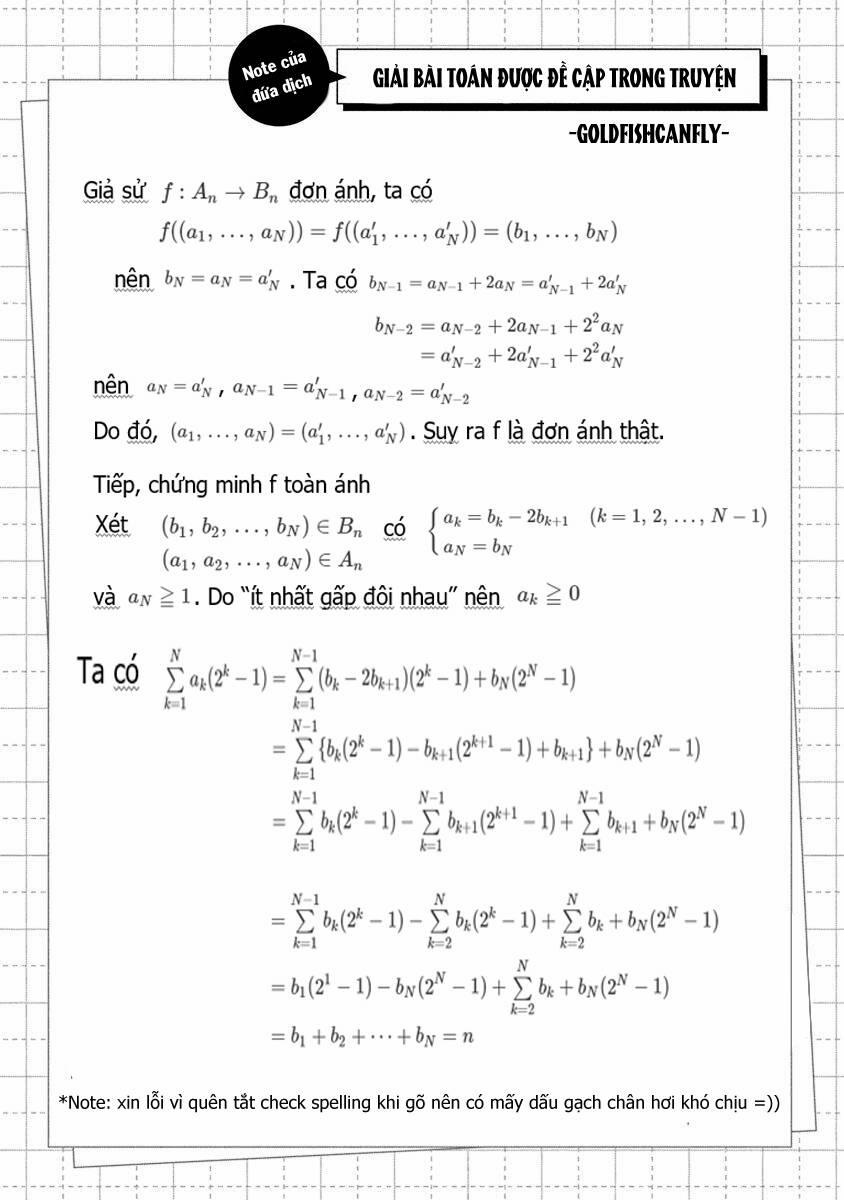 Note của
đứa dịch
GIẢI BÀI TOÁN ĐƯỢC ĐỀ CẬP TRONG TRUYỆN
-GOLDFISHCANFLY-
Giả sử f : Aₙ → Bₙ đơn ánh, ta có
f((a₁, …, a_N)) = f((a′₁, …, a′_N)) = (b₁, …, b_N)
nên b_N = a_N = a′_N . Ta có b_{N−1} = a_{N−1} + 2a_N = a′_{N−1} + 2a′_N
b_{N−2} = a_{N−2} + 2a_{N−1} + 2²a_N
= a′_{N−2} + 2a′_{N−1} + 2²a′_N
nên a_N = a′_N , a_{N−1} = a′_{N−1} , a_{N−2} = a′_{N−2}
Do đó, (a₁, …, a_N) = (a′₁, …, a′_N) . Suy ra f là đơn ánh thật.
Tiếp, chứng minh f toàn ánh
Xét (b₁, b₂, …, b_N) ∈ Bₙ có { a_k = b_k − 2b_{k+1} (k = 1, 2, …, N − 1)
(a₁, a₂, …, a_N) ∈ Aₙ a_N = b_N
và a_N ≧ 1 . Do “ít nhất gấp đôi nhau” nên a_k ≧ 0
Ta có ∑_{k=1}^{N} a_k(2^k − 1) = ∑_{k=1}^{N−1} (b_k − 2b_{k+1})(2^k − 1) + b_N(2^N − 1)
= ∑_{k=1}^{N−1} {b_k(2^k − 1) − b_{k+1}(2^{k+1} − 1) + b_{k+1}} + b_N(2^N − 1)
= ∑_{k=1}^{N−1} b_k(2^k − 1) − ∑_{k=1}^{N−1} b_{k+1}(2^{k+1} − 1) + ∑_{k=1}^{N−1} b_{k+1} + b_N(2^N − 1)
= ∑_{k=1}^{N−1} b_k(2^k − 1) − ∑_{k=2}^{N} b_k(2^k − 1) + ∑_{k=2}^{N} b_k + b_N(2^N − 1)
= b₁(2¹ − 1) − b_N(2^N − 1) + ∑_{k=2}^{N} b_k + b_N(2^N − 1)
= b₁ + b₂ + ⋯ + b_N = n
*Note: xin lỗi vì quên tắt check spelling khi gõ nên có mấy dấu gạch chân hơi khó chịu =))